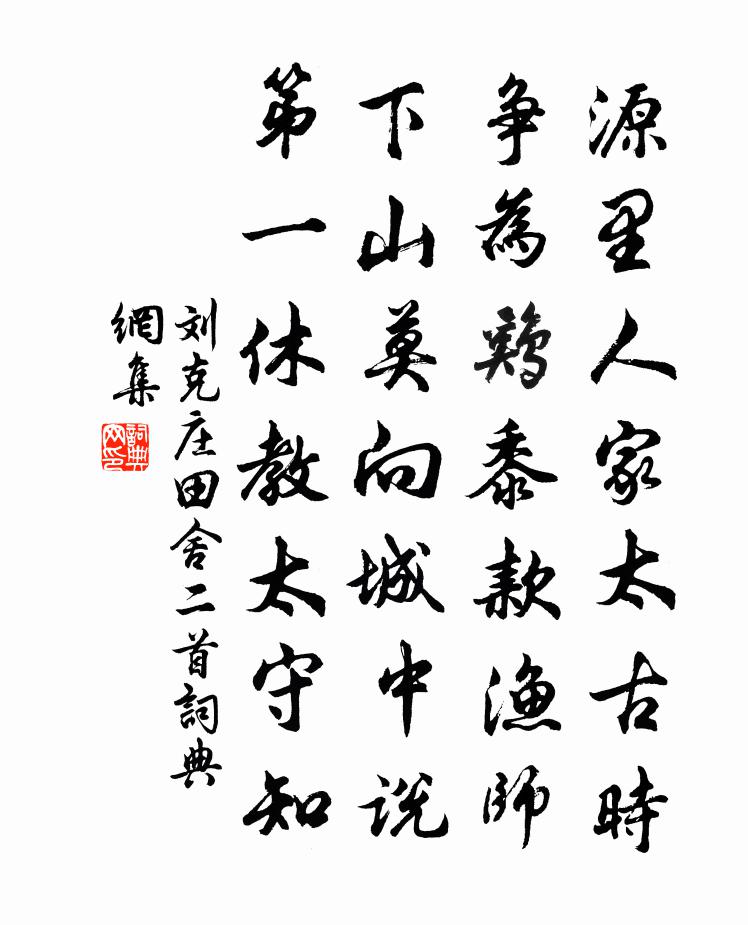 源里人家太古時
争為鷄黍款漁師
下山莫向城中說
第一休教太守知
刘克庄田舍二首詞典
網集
詞典網印